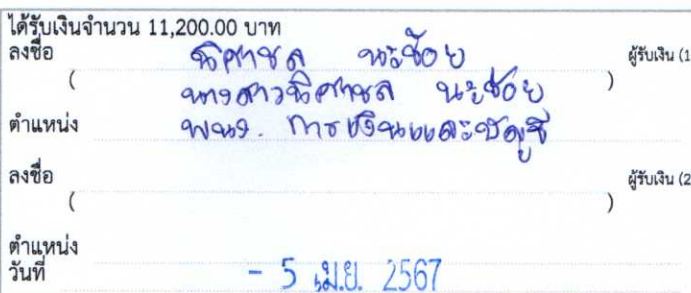 ได้รับเงินจำนวน 11,200.00 บาท
ลงชื่อ นิศาชล นะช้อย ผู้รับเงิน (1
( นางสาวนิศาชล นะช้อย )
ตำแหน่ง พนง. การเงินและบัญชี
ลงชื่อ ผู้รับเงิน (2
( )
ตำแหน่ง
วันที่ - 5 เม.ย. 2567